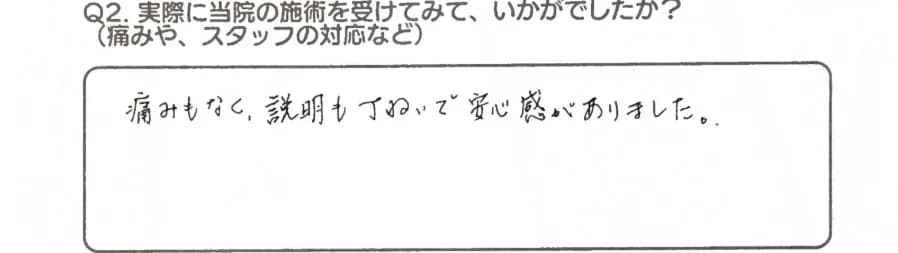 Q2. 実際に当院の施術を受けてみて、いかがでしたか？
（痛みや、スタッフの対応など）
痛みもなく、説明も丁ねいで安心感がありました。